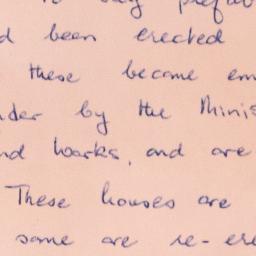 been erected
these become em
by the Minis
and works, and are
These houses are
some are re-ere